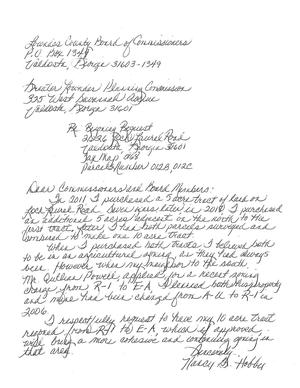 Lowndes County Board of Commissioners
P.O. Box 1349
Valdosta, Georgia 31603-1349
Greater Lowndes Planning Commission
325 West Savannah Avenue
Valdosta, Georgia 31601
Re: Rezoning Request
Rock Road
Valdosta, Georgia 31601
Tax Map
Parcels Number 012B, 012C
Dear Commissioners and Board Members:
In 2011 I purchased a 5 acre tract of land on
Road. Seven years later in 2018, I purchased
an additional 5 acres adjacent on the north to the
first tract. Later I had both parcels surveyed and
combined to make one 10 acre tract.
When I purchased both tracts, I believed both
to be in an agricultural zoning, as they had always
been. However, when my neighbor to the south,
Mr. Powell, applied for a recent zoning
change from R-1 to E-A, I learned both his property
and mine had been changed from A-U to R-1 in
2006.
I respectfully request to have my 10 acre tract
rezoned from R-1 to E-A, which if approved
will bring a more cohesive and conforming zoning in
that area.
Sincerely,
Nancy G. Hobby